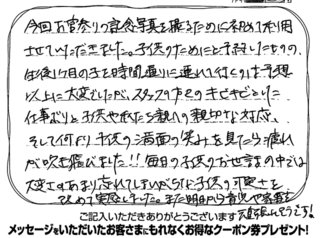 今回お宮参りの記念写真を撮るために初めて利用
させていただきました。子供のためにと予約したものの、
生後1ヶ月の子を時間通りに連れて行くのは予想
以上に大変でしたが、スタッフの方のキビキビとした
仕事ぶりと子供や私たち親への親切な対応、
そして何より子供の満面の笑みを見たら疲れ
が吹き飛びました!!毎日の子供のお世話の中では
大変さのあまり忘れてしまいがちな子供の可愛さを
改めて実感しました。また明日から育児や家事を
頑張れそうです!
ご記入いただきありがとうございます
メッセージをいただいたお客さまにもれなくお得なクーポン券プレゼント!